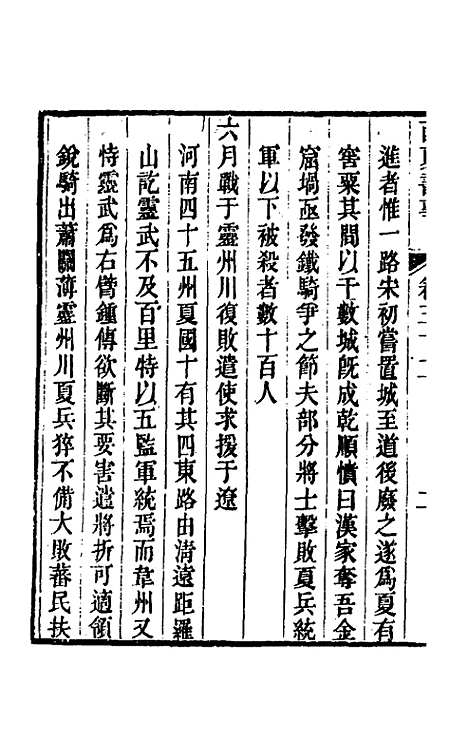 進者惟一路宋初嘗置城至道後廢之遂爲夏有
窖粟其間以千數城旣成乾順憤曰漢家奪吾金
窟堝亟發鐵騎爭之節夫部分將士擊敗夏兵統
軍以下被殺者數十百人
六月戰于靈州川復敗遣使求援于遼
河南四十五州夏國十有其四東路由清遠距羅
山訖靈武不及百里特以五監軍統焉而韋州又
恃靈武爲右臂鍾傳欲斷其要害遣將折可適領
銳騎出蕭關薄靈州川夏兵猝不備大敗蕃民扶